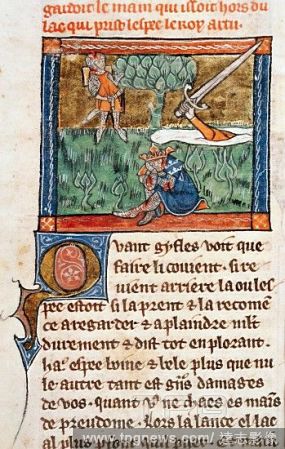 gardoit le main qui issoit hors du
lac qui prist lespee le roy artu .
Quant gyfles voit que
faire li couient . si re
uient arriere la ou les
pee estoit si la prent & la recom̄
ce a regarder & a plaindre ml't
durement & dist tot en plorant .
ha . espee boine & bele plus que
nule autre tant est grās damages
de vos . quant vne chaes es mains
de preudome . lors la lance el lac
al plus
www.tpgnews.com
達志影像